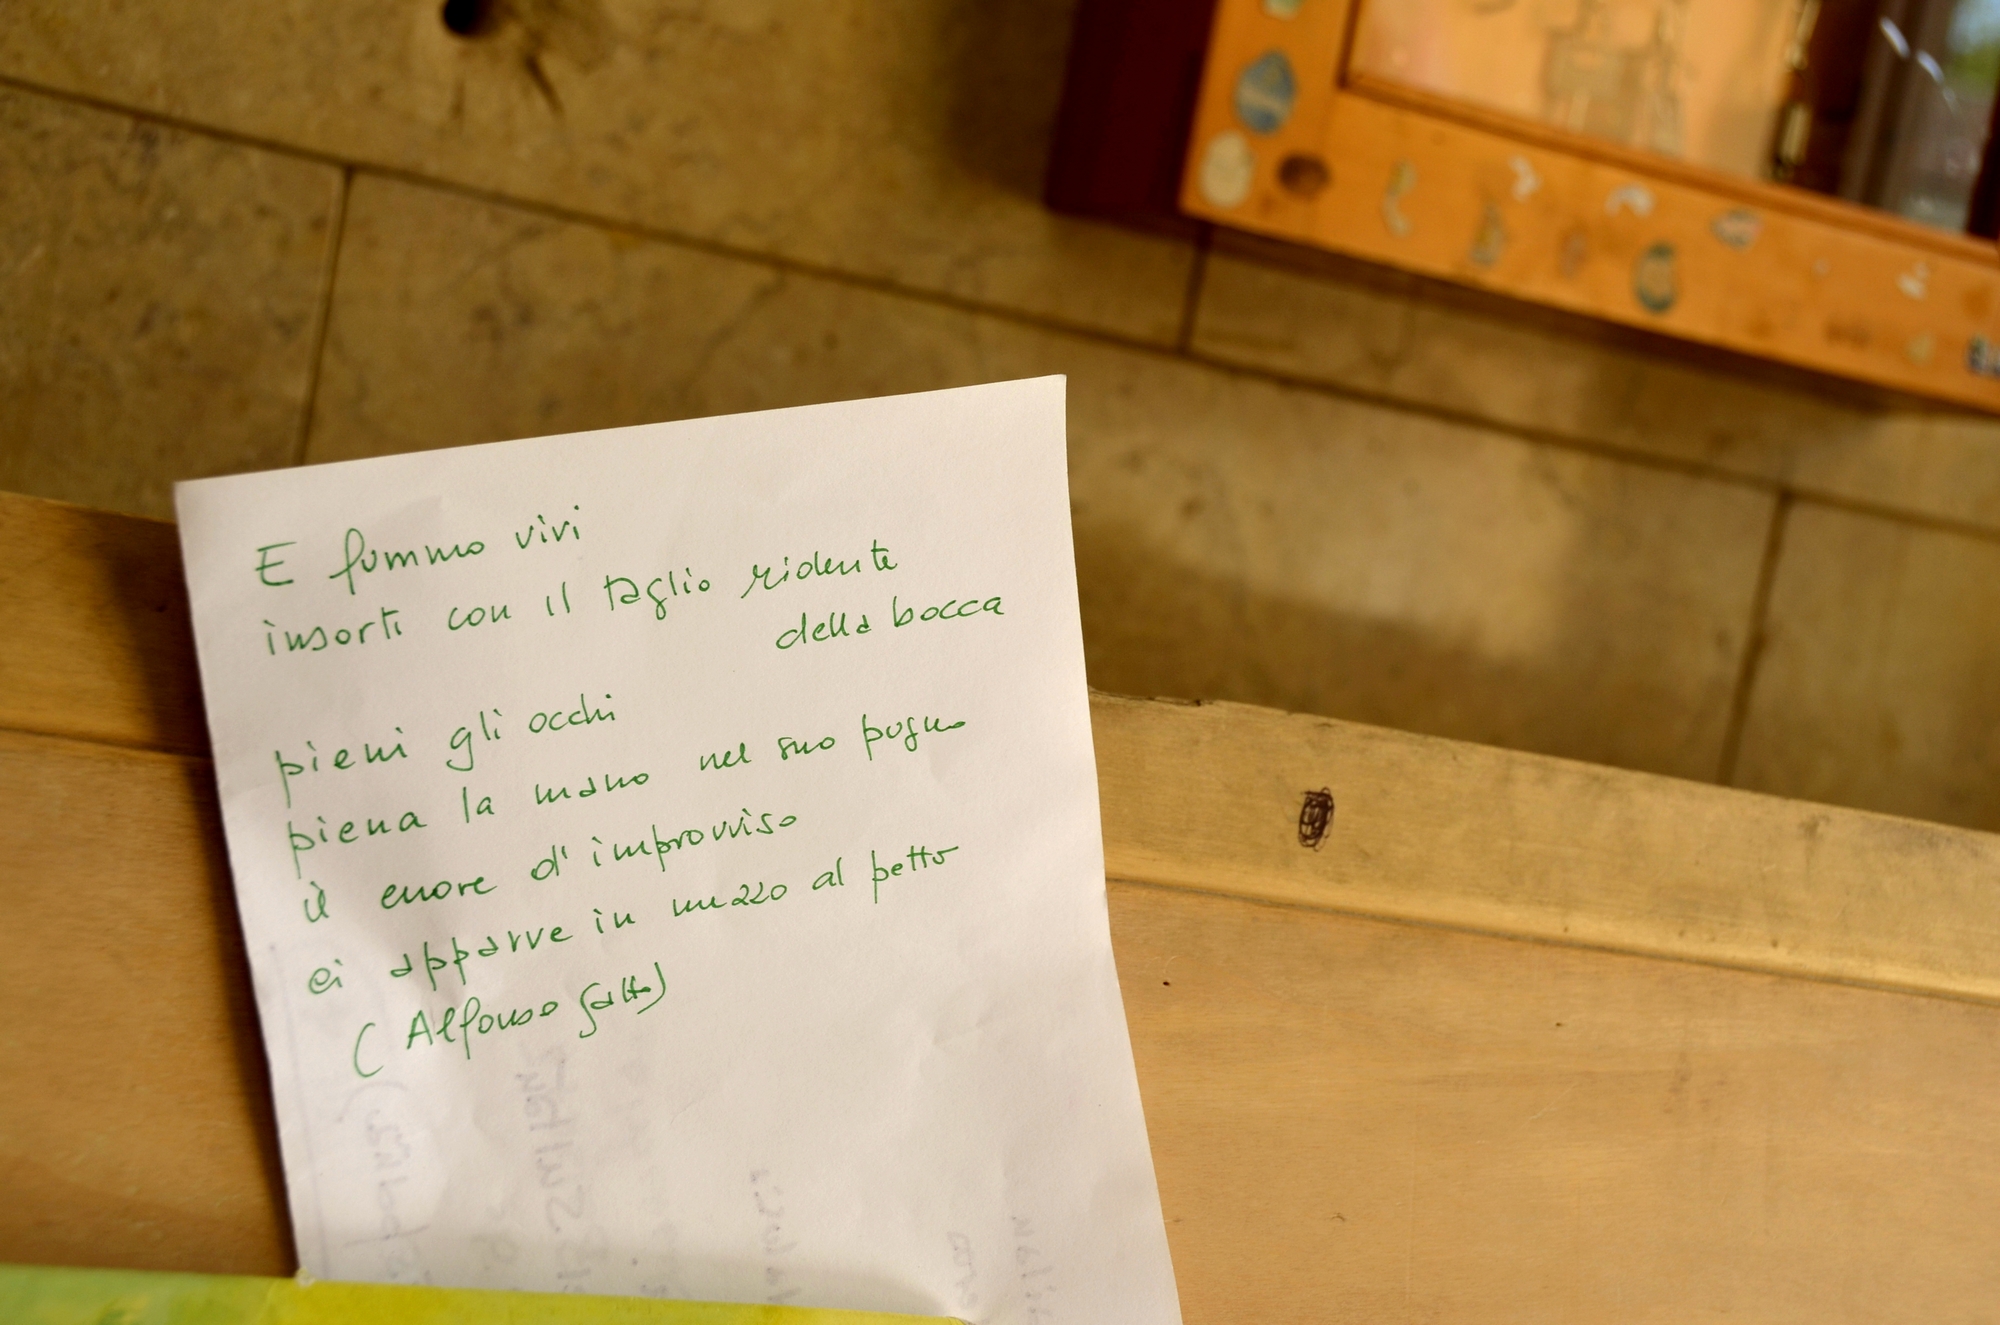 E fummo vivi
insorti con il taglio ridente
della bocca
pieni gli occhi
piena la mano nel suo pugno
il cuore d'improvviso
ci apparve in mezzo al petto
(Alfonso Gatto)